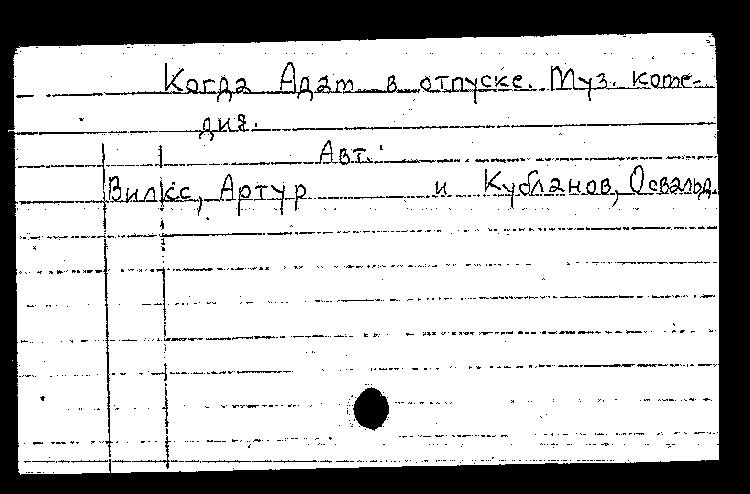 Когда Адам в отпуске. Муз. коме-
дия.
Авт.:
Вилкс, Артур и Кубланов, Освальд.